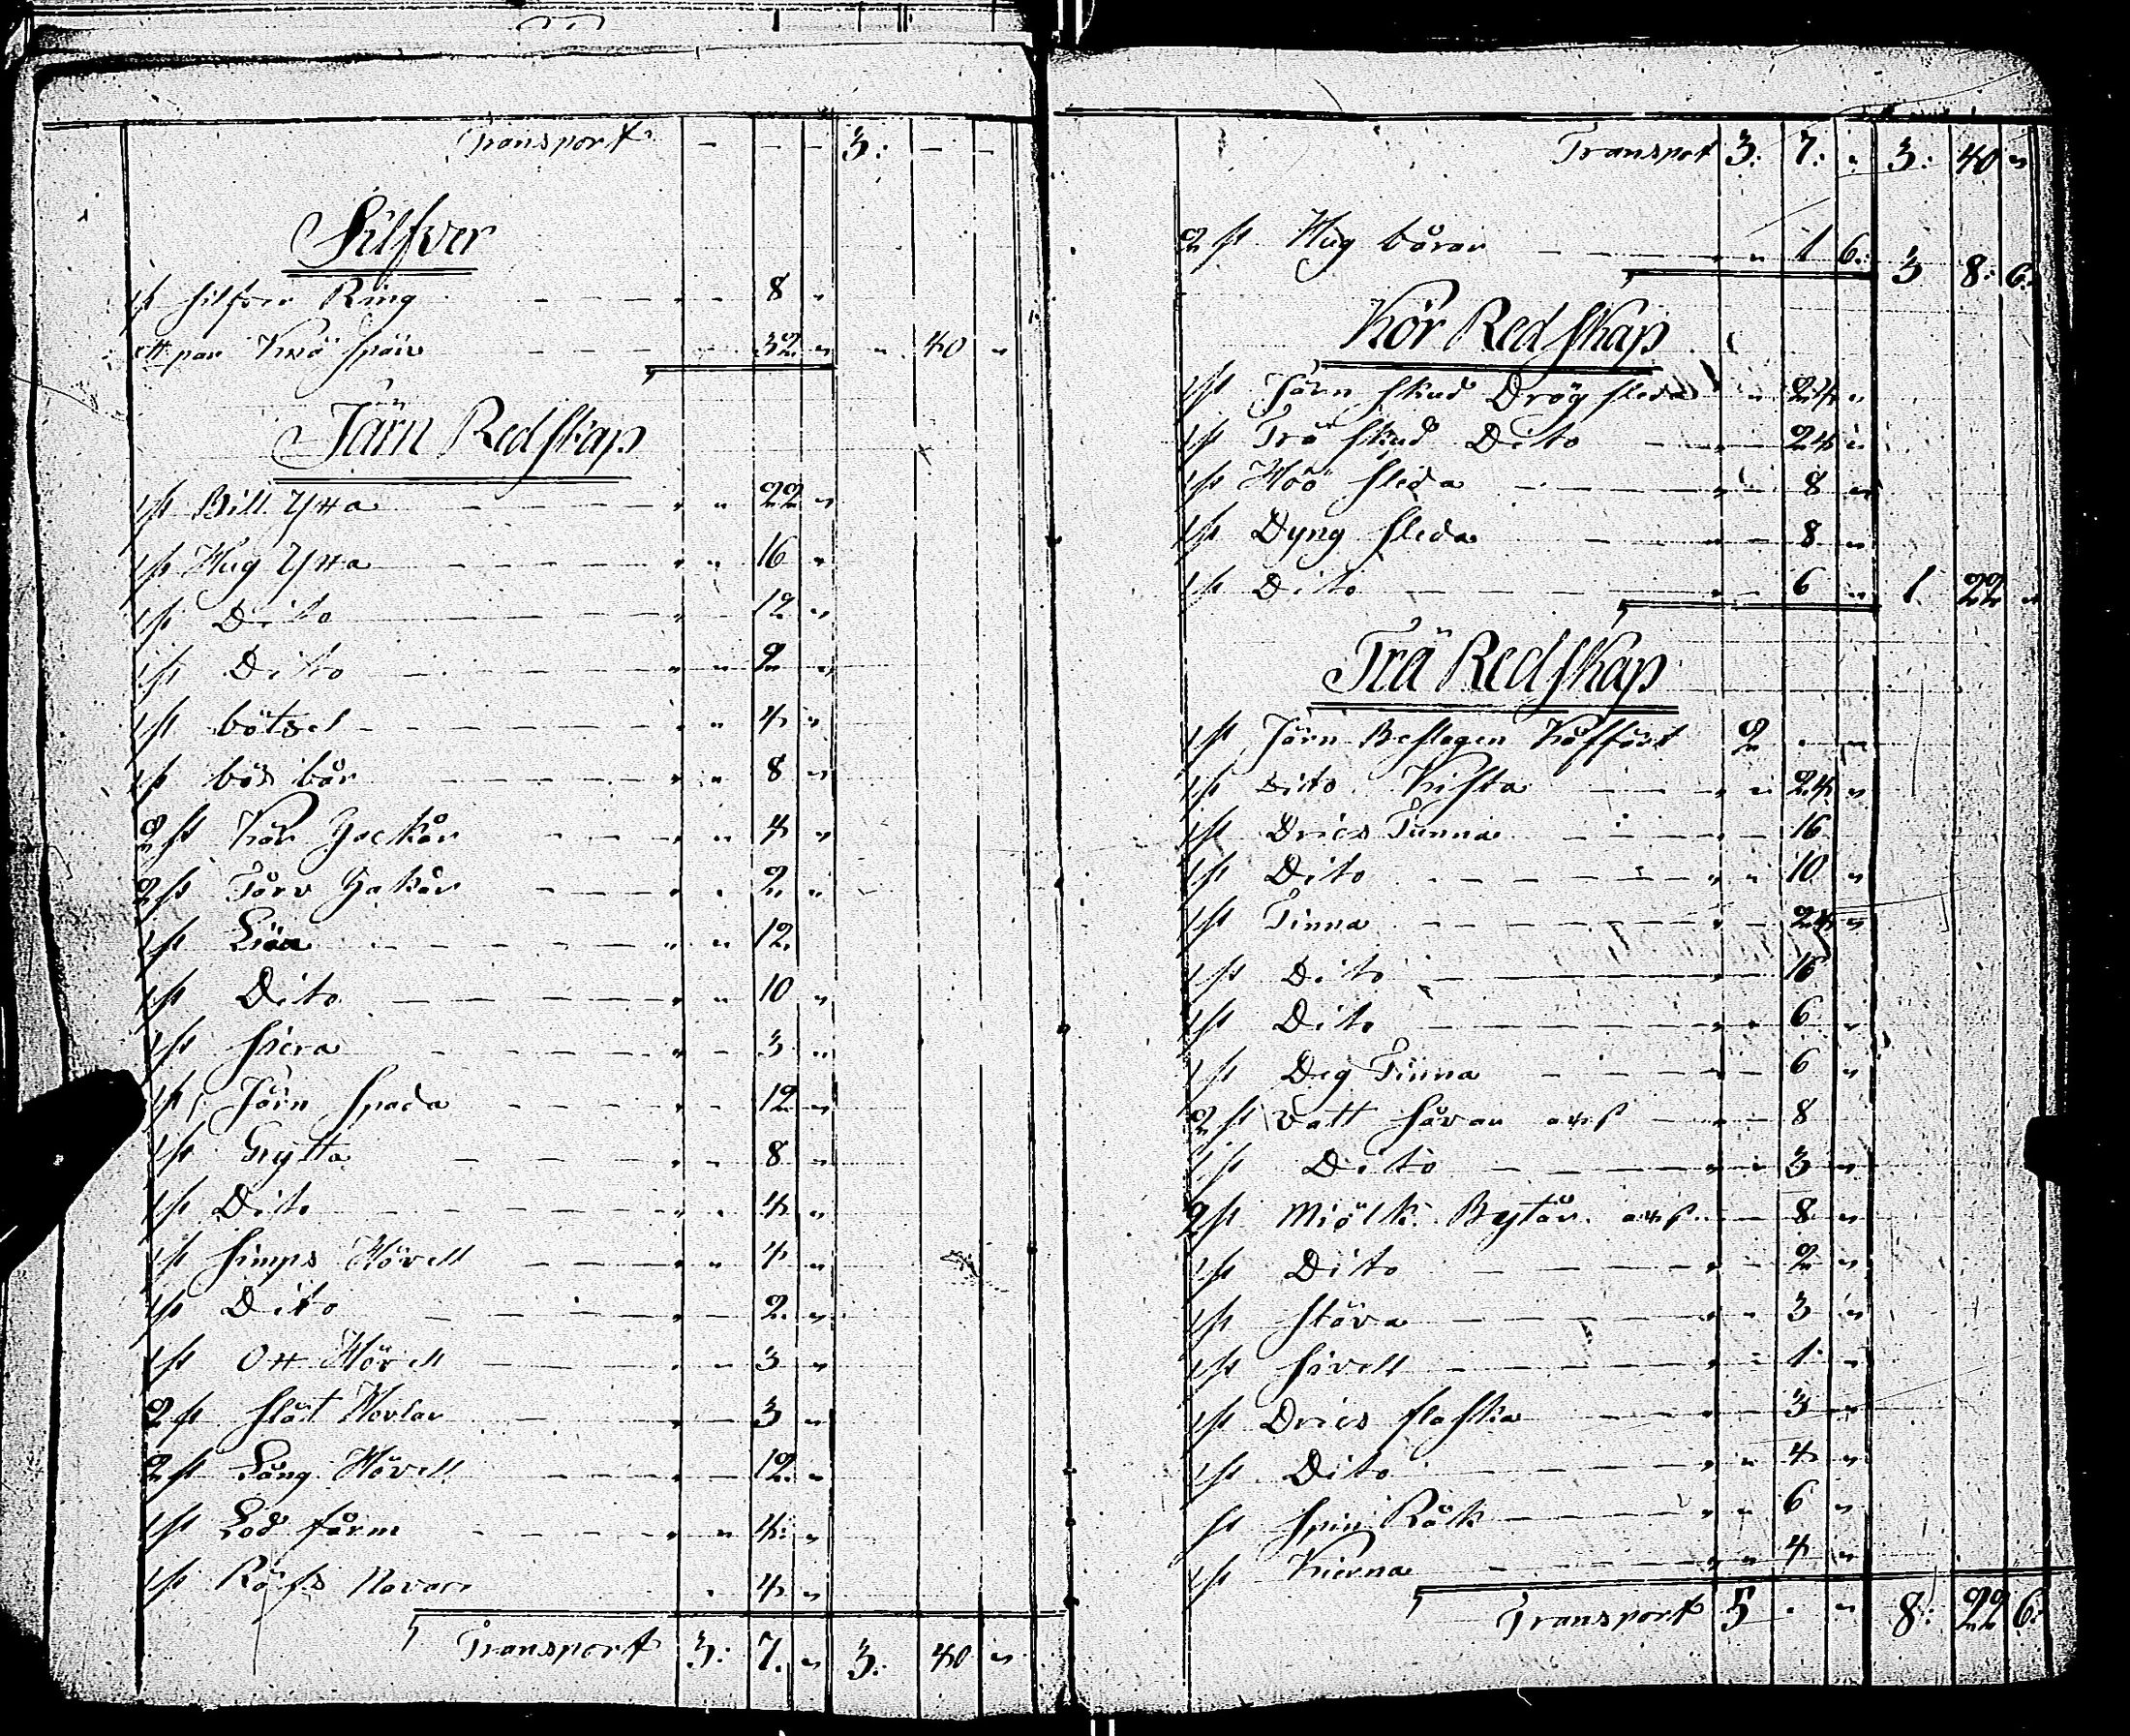 Transport - - - 3: - -
Silfver
1 st silfver Ring - - - " - 8 "
ett par Knä späñe - - - 32 " " 40 "
Järn Redskap
1 st Bill Yxa - - - " " 22 "
1 st Hug Yxa - - - " " 16 "
1 st Dito - - - " 12 "
1 st Dito - - - " " 2 "
1 st bötsel - - - " " 4 "
1 st bös bår - - - " " 8 "
2 st Kör - - - " " 4 "
2 st Törv - - - " " 2 "
1 st Liaa - - - " " 12
1 st Dito - - - " " 10 "
1 st skera - - - " - 3 "
1 st Järn spada - - - " - 12 "
1 st Grytta - - - " - 8 "
1 st Dito - - - " " 4 "
1 st simps Hövell - - - " " 4 "
1 st Dito - - - " - 2 "
1 st Ott Hövell - - - " - 3 "
2 st slät Hövlar - - - " - 3 "
2 st Lång Hövell - - - " - 12 "
1 st Lod form - - - " " 4: "
1 st Navare " 4 "
Transport 3: 7. " 3: 40 "
Transport 3: 7: " 3: 40 "
2 st Hug bårar - - - " " 1 6: 3 8: 6:
Kör Redskap
1 st Järn skud Drög sleda " 24 "
1 st Trä skud Dito - - " - 24 "
1 st Höö sleda - - - " " 8 "
1 st Dyng sleda - - - " - 8 "
1 st Dito - - - " - 6 " 1. 22 "
Trä Redskap
1 st Järn Beslagen Koffört 2 . "
1 st Dito Kista - - " " 24 "
1 st Drics Tunna - - - " - 16
1 st Dito - - - " " 10 "
1 st Tinna - - - " - 24 "
1 st Dito - - - " - 16
1 st Dito - - - " " 6 "
1 st Deg Tinna - - - " - 6 "
2 st Vatt Såvar a 4 s - " - 8
1 st Dito - - - " " 3 "
2 st Miölk Byttår a 4 s - - 8 "
1 st Dito - - - " - 2 "
1 st stöva - - - " " 3 "
1 st Såvell - - - " " 1 "
1 st Drics flaska - - - " - 3 "
1 st Dito - - - " " 4 "
st spin Råck - - - " " 6 "
1 st Kierna - - - " " 4 "
Transport 5 . " 8: 22 6: